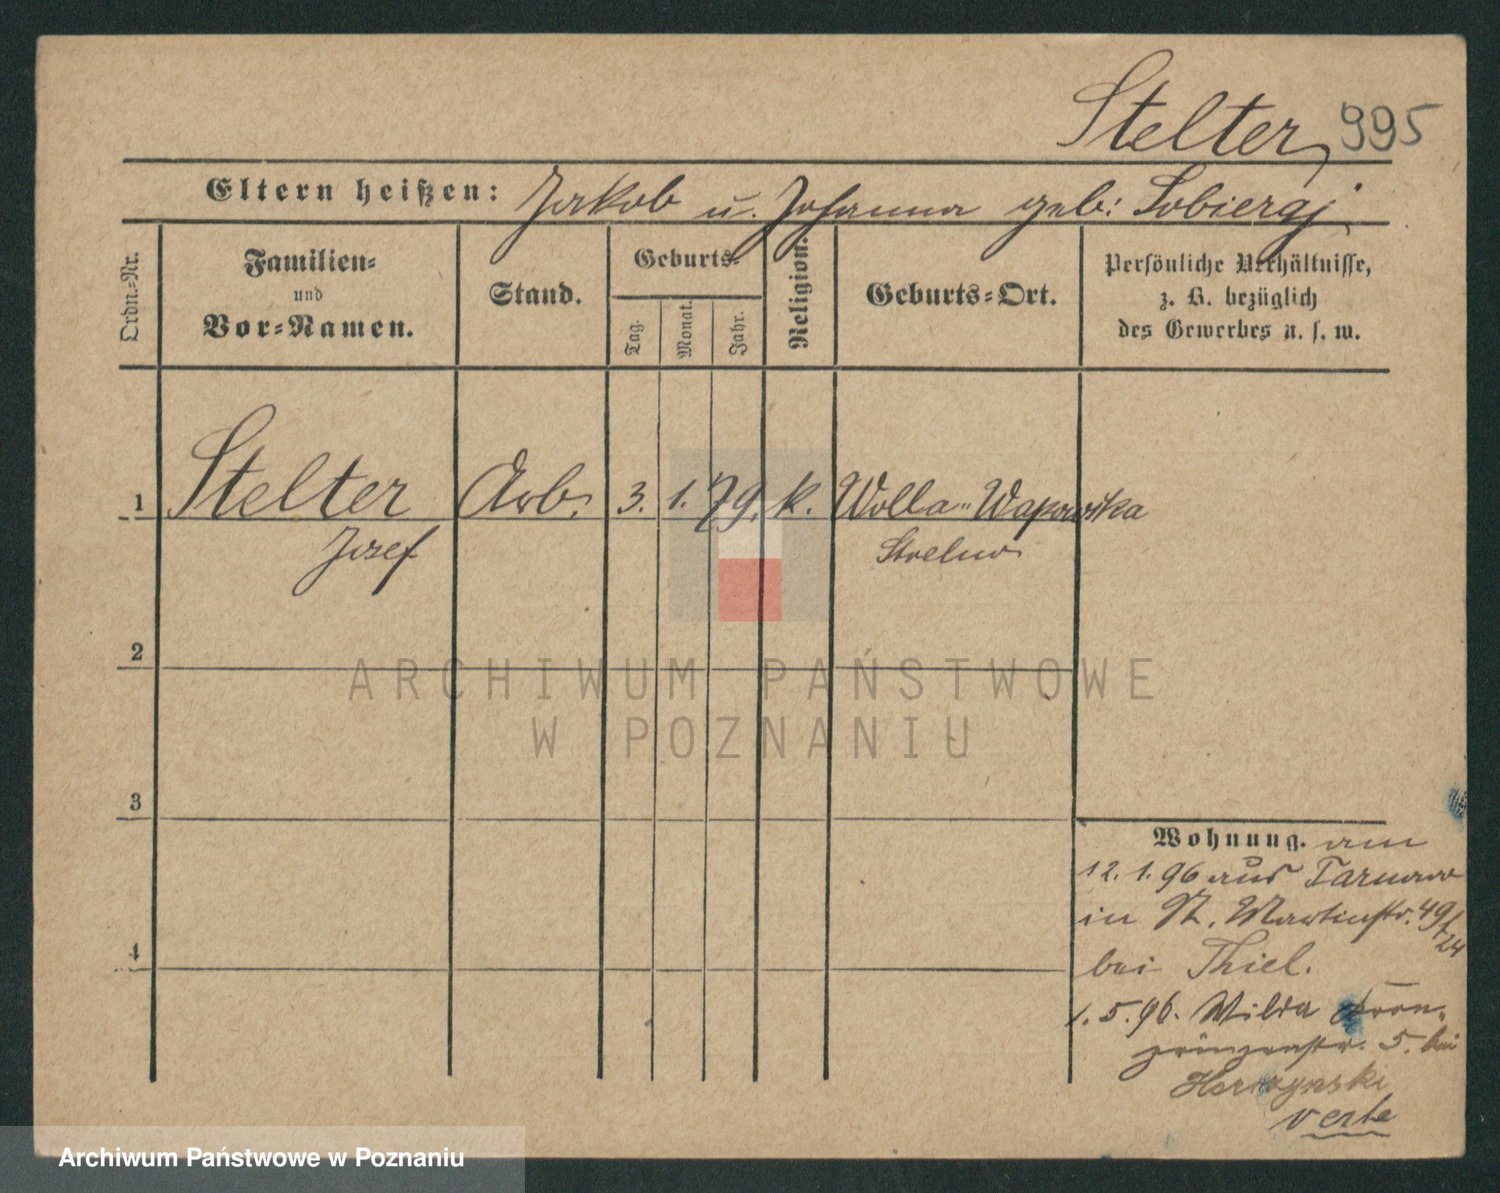 Stelter, 995
Eltern heißen: Jakob u. Johanna geb: Sobieraj
Ordn.-Nr.
Familien-
und
Vor-Namen.
Stand.
Geburts-
Tag.
Monat.
Jahr.
Religion.
Geburts-Ort.
Persönliche Verhältnisse,
z. B. bezüglich
des Gewerbes u. s. w.
1 Stelter Arb. 3. 1. 79. k. Wolla-Wapowska
Josef Strelno
2
3
4
Wohnung. am
12. 1. 96 aus Tarnowo
in St. Martinstr. 49/24
bei Thiel.
1. 5. 96. Wilda Kron-
prinzenstr. 5. bei
verte
ARCHIWUM PAŃSTWOWE
W POZNANIU
Archiwum Państwowe w Poznaniu